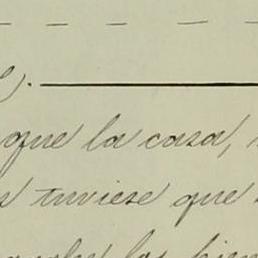 que la casa,
tuviese que
los bien